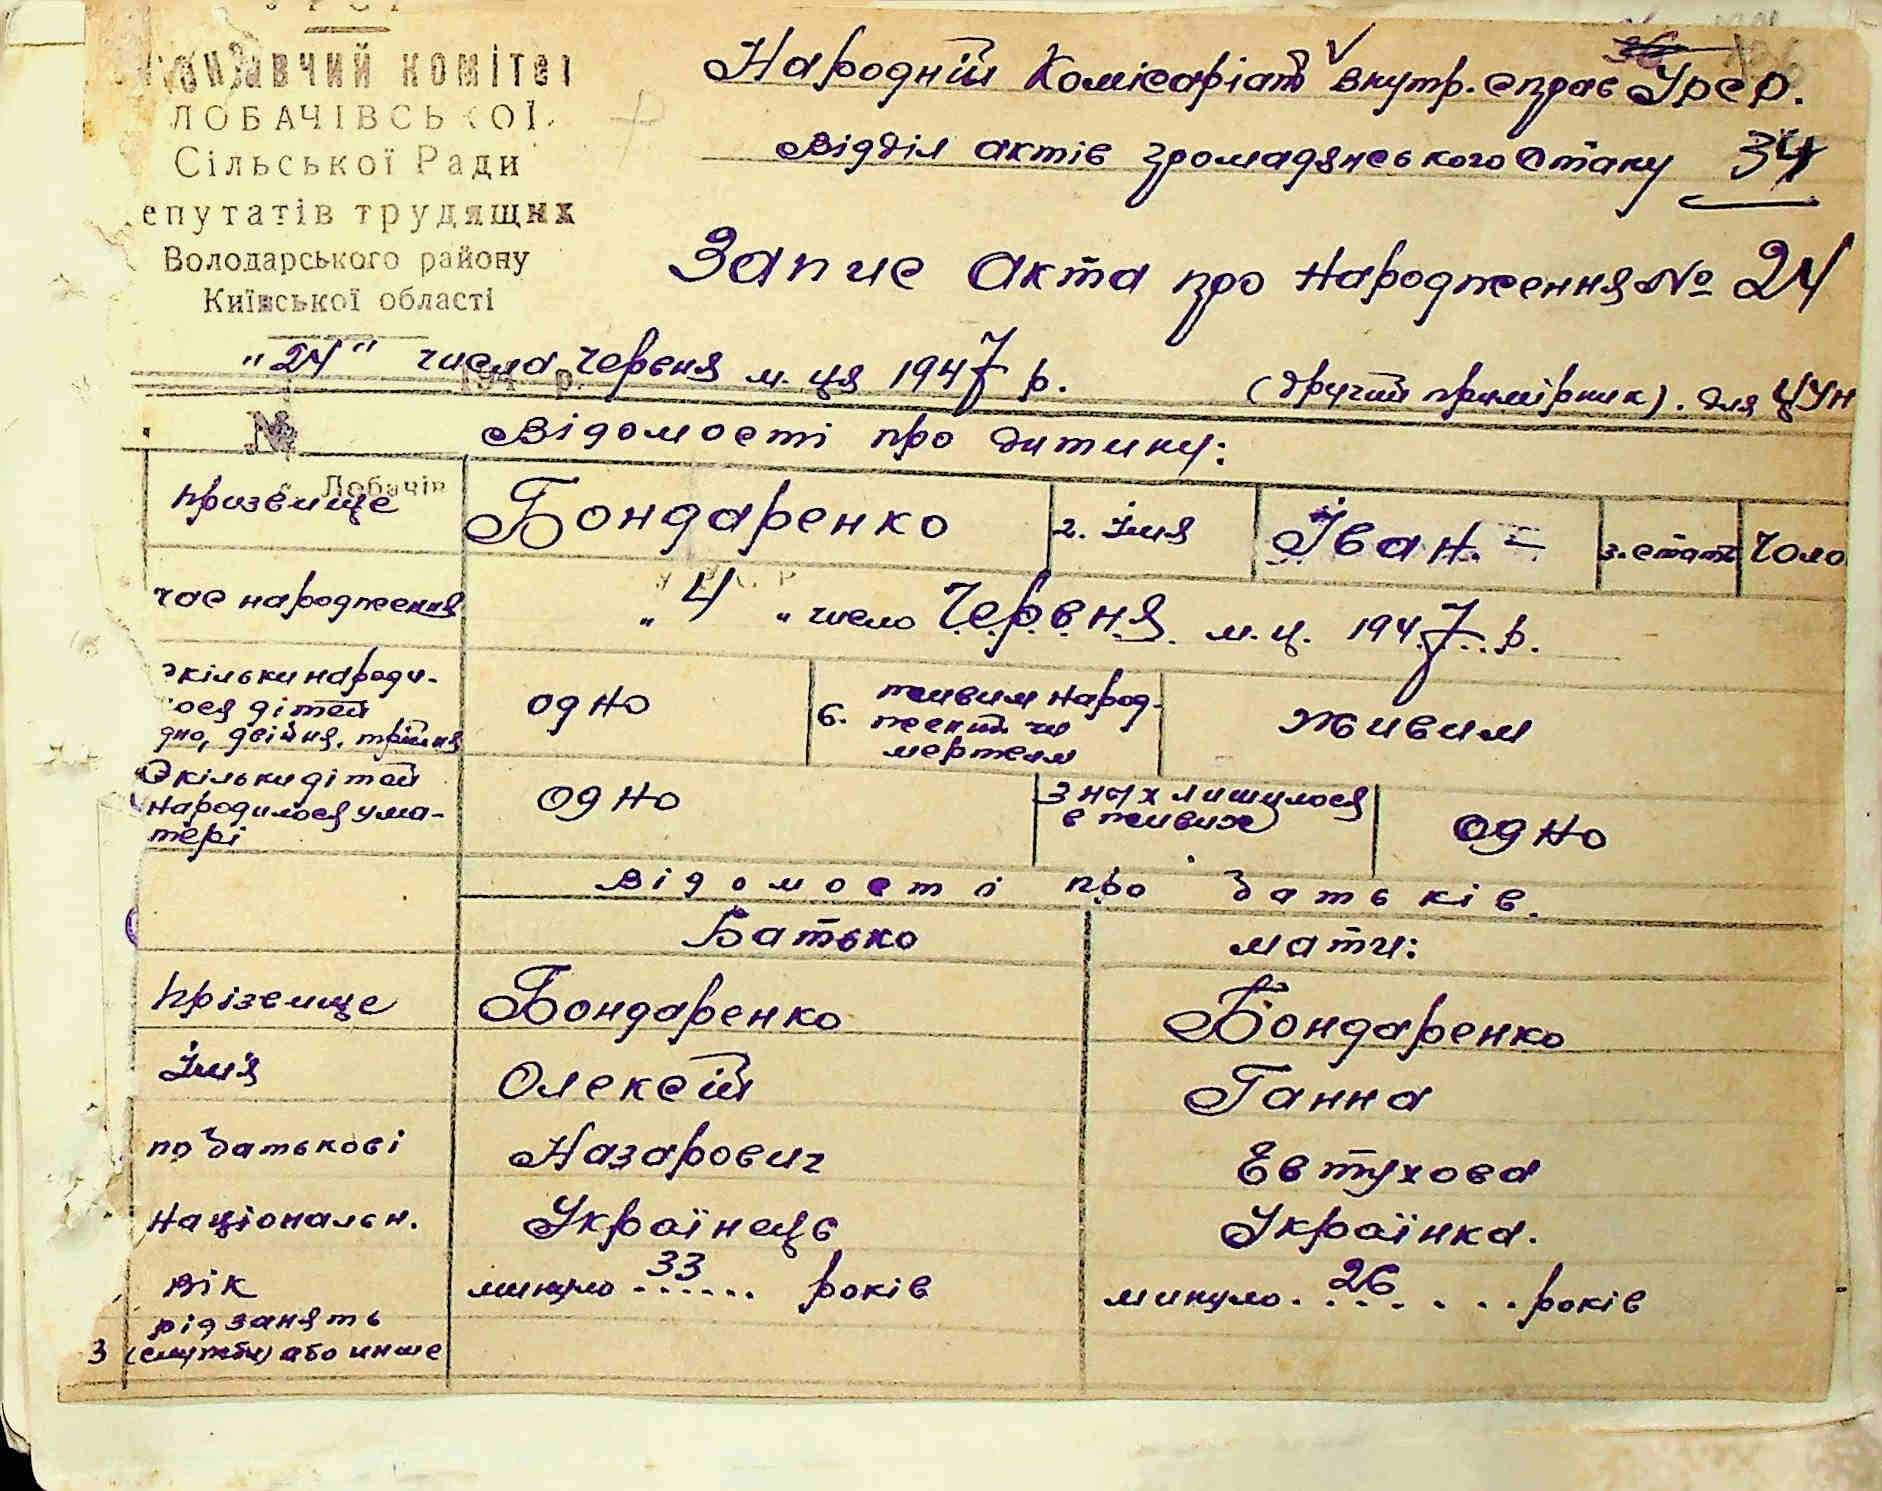 У Р С Р
Виконавчий комітет
ЛОБАЧІВСЬКОЇ
Сільської Ради
епутатів трудящих
Володарського району
Київської області
194 р.
№
с. Лобачів
Народній Комісаріат внутр. справ Урср.
Відділ актів громадянського стану 34
Запис акта про народження № 24
"24" числа червня м-ця 1947 р. (другий примірник). для ЦУН
Відомості про дитину:
прізвище Бондаренко 2. Імя Іван. 3. стать Чоло
час народження "4" число Червня м.ц. 1947 р.
скільки народи-
лося дітей
дно, двійня, трійня
одно
6. живим народ-
жений чи
мертвим
живим
Скільки дітей
народилося у ма-
тері
одно
З них лишилося
в живих
одно
Відомості про батьків.
Батько мати:
прізвище Бондаренко Бондаренко
Імя Олексій Ганна
по батькові Назарович Евтухова
Національн. Українець Українка.
вік минуло 33 років минуло 26 років
рід занять
3 (служби) або инше